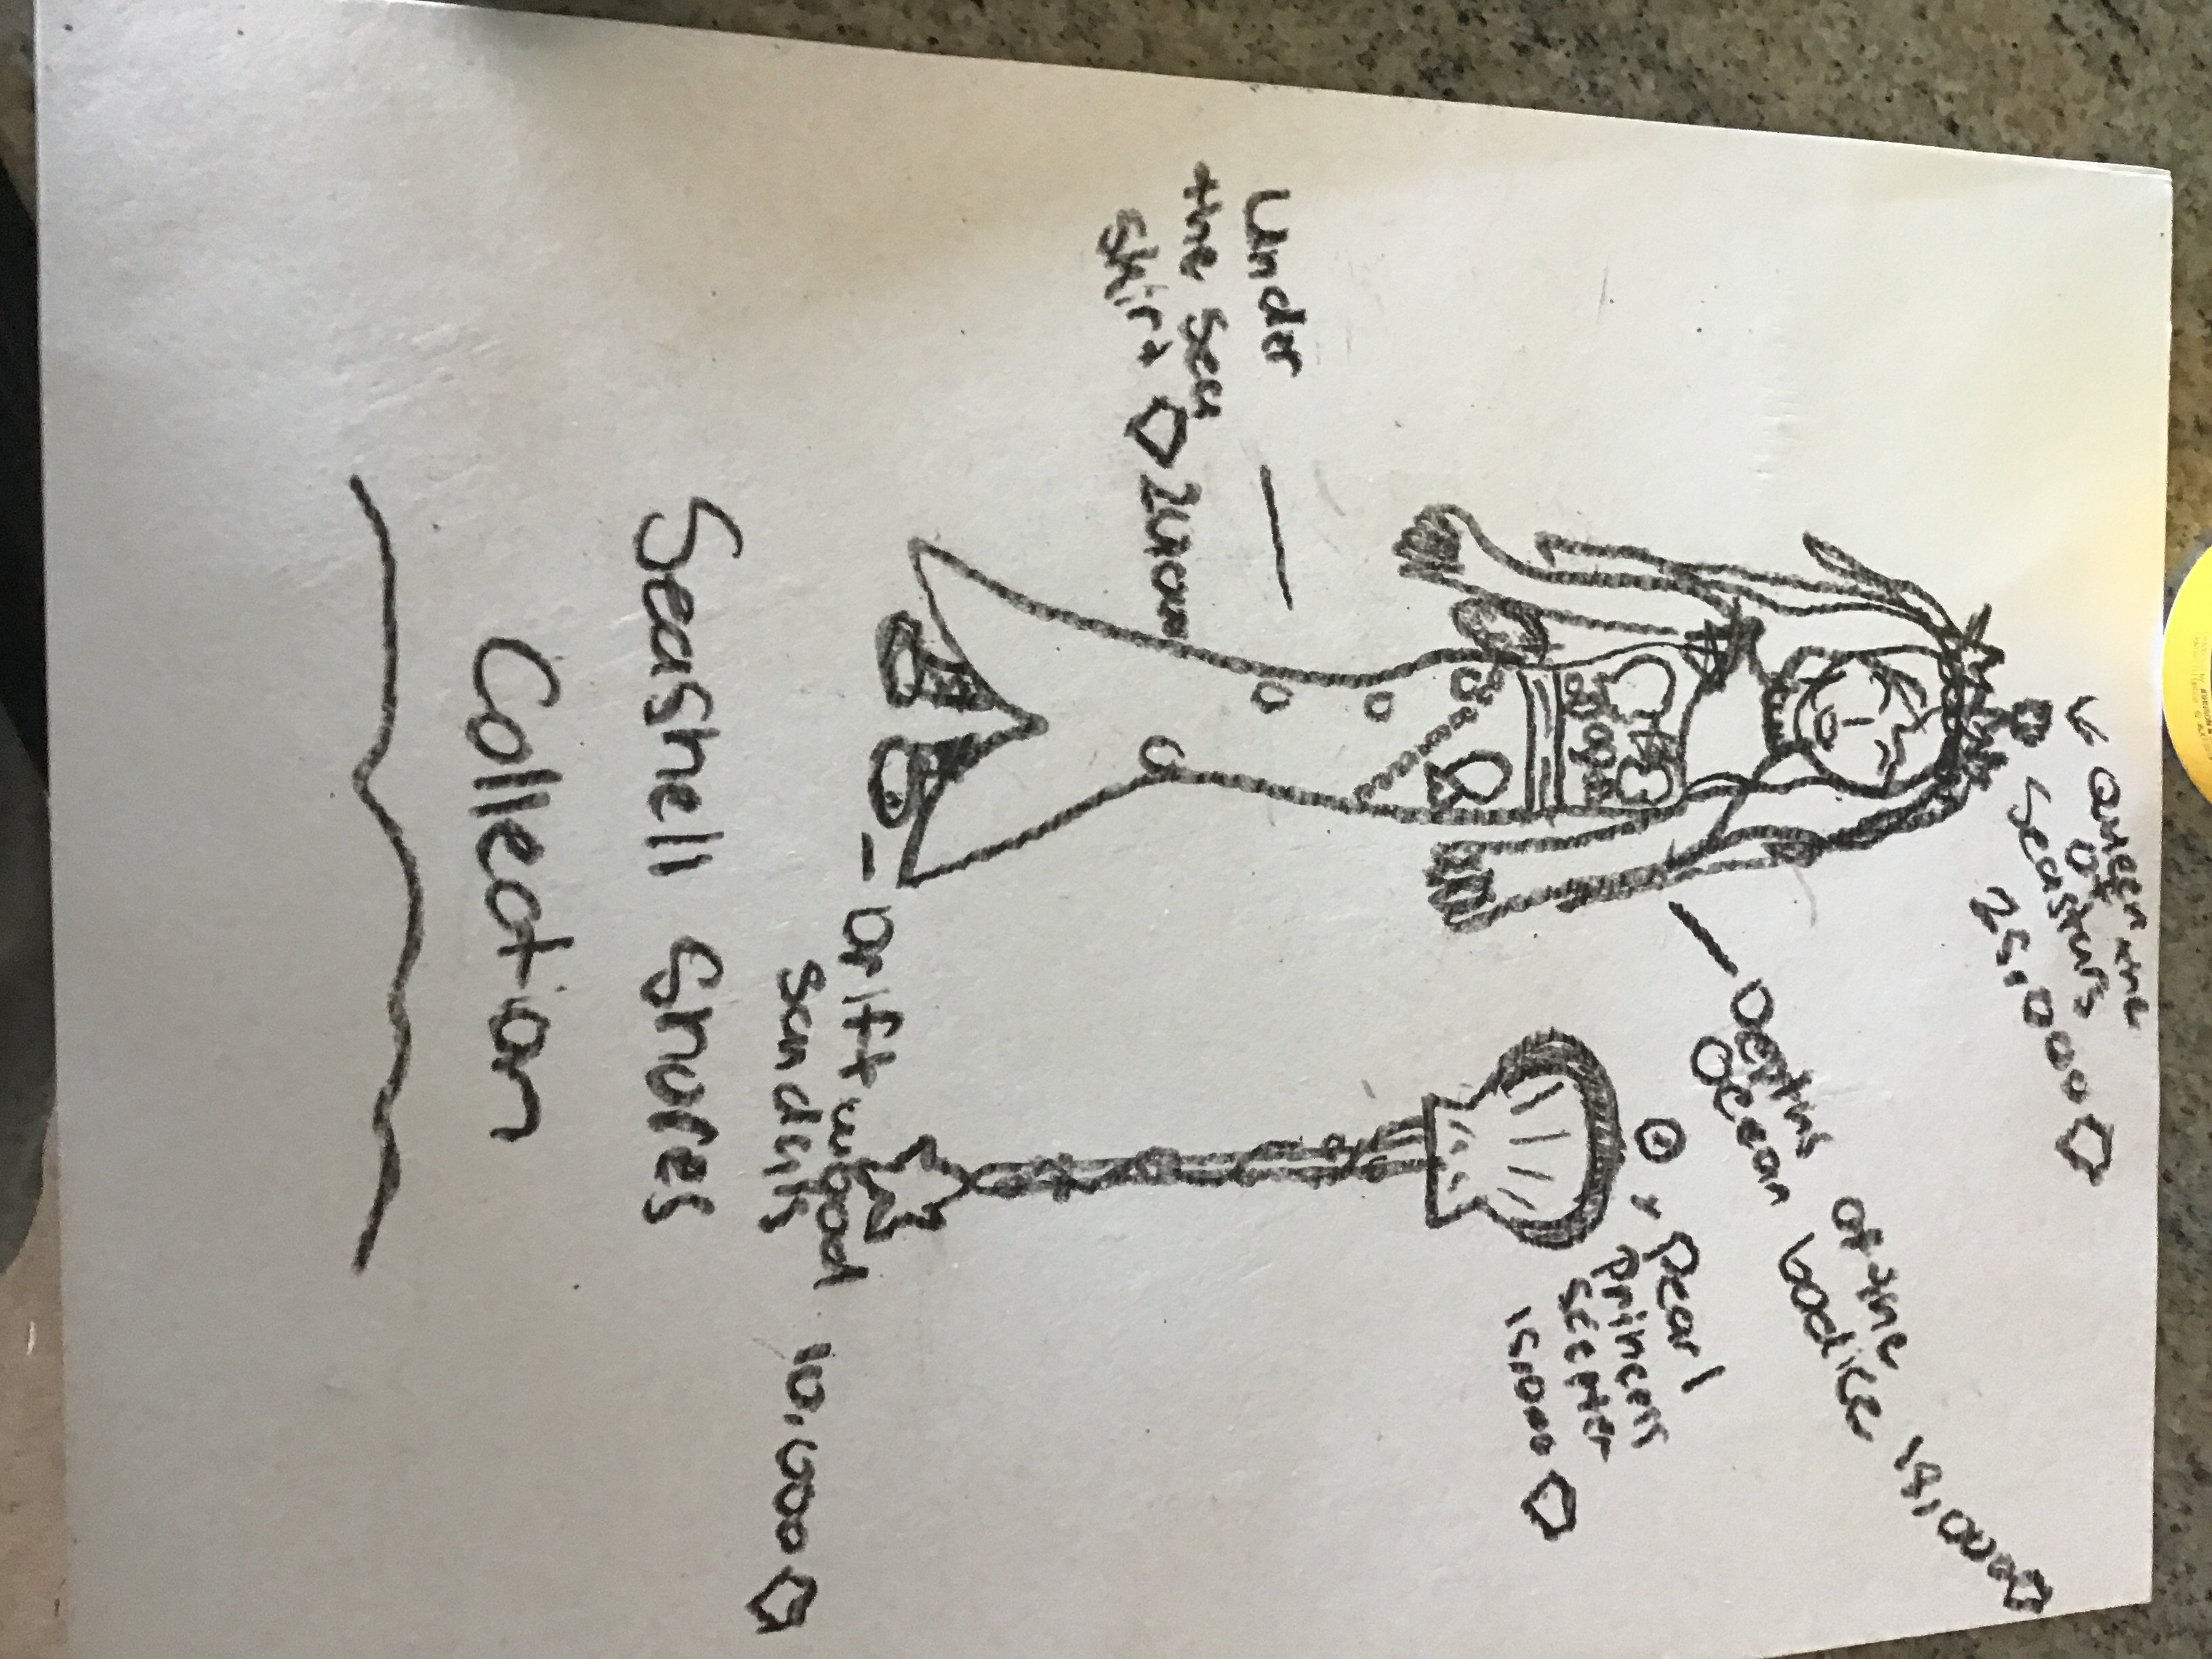 Queen the
of
Seastars
25,000
Depths of the
Ocean bodice 18,000
Pearl
Princess
Scepter
15,000
Under
the Sea
Skirt
Drift wood 10,000
Sandals
Seashell Graces
Collection